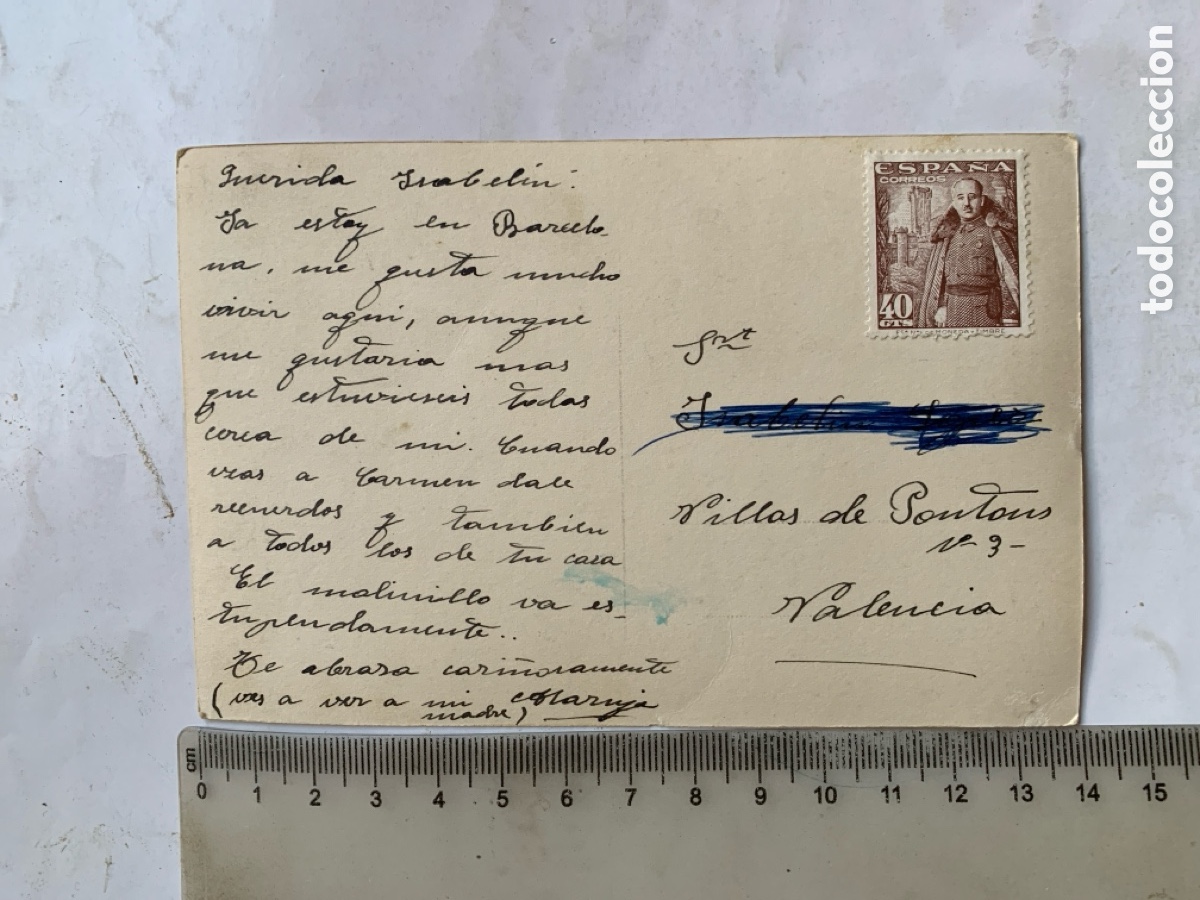 Querida Isabelín:
Ya estoy en Barcelo-
na, me gusta mucho
vivir aqui, aunque
me gustaria mas
que estuvieseis todas
cerca de mi. Cuando
veas a Carmen dale
recuerdos y tambien
a todos los de tu casa
El molinillo va es-
tupendamente..
Te abraza cariñosamente
(ves a ver a mi madre) Maruja
ESPAÑA
CORREOS
40
CTS
Srt
Isabelin
Villas de Pontons
nº 3-
Valencia
todocoleccion
cm
0 1 2 3 4 5 6 7 8 9 10 11 12 13 14 15